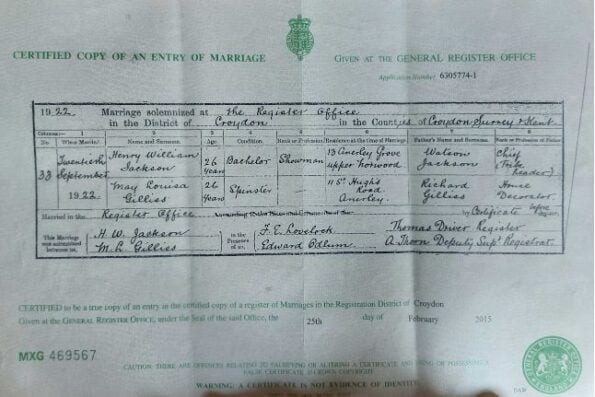 CERTIFIED COPY OF AN ENTRY OF MARRIAGE
GIVEN AT THE GENERAL REGISTER OFFICE
Application Number 6305774-1
1922. Marriage solemnized at The Register Office
in the District of Croydon in the Counties of Croydon Surrey & Kent
Columns:— 1 2 3 4 5 6 7 8
No. When Married Name and Surname Age Condition Rank or Profession Residence at the time of Marriage Father's Name and Surname Rank or Profession of Father
33 Twentieth September 1922 Henry William Jackson 26 years Bachelor Showman 13 Anerley Grove upper Norwood Watson Jackson Chief (Tribe Leader)
May Louisa Gilliss 26 years Spinster — 11 St Hugh's Road Anerley. Richard Gilliss House Decorator.
Married in the Register Office by Certificate before me,
This Marriage was solemnized between us, H. W. Jackson M. L. Gilliss in the Presence of us, F. E. Lovelock Edward Odlum Thomas Driver Register A Thorn Deputy Supt Registrar.
CERTIFIED to be a true copy of an entry in the certified copy of a register of Marriages in the Registration District of Croydon
Given at the GENERAL REGISTER OFFICE, under the Seal of the said Office, the 25th day of February 2015
MXG 469567
CAUTION: THERE ARE OFFENCES RELATING TO FALSIFYING OR ALTERING A CERTIFICATE AND USING OR POSSESSING A
FALSE CERTIFICATE. © CROWN COPYRIGHT
WARNING: A CERTIFICATE IS NOT EVIDENCE OF IDENTITY.
GENERAL REGISTER OFFICE ENGLAND